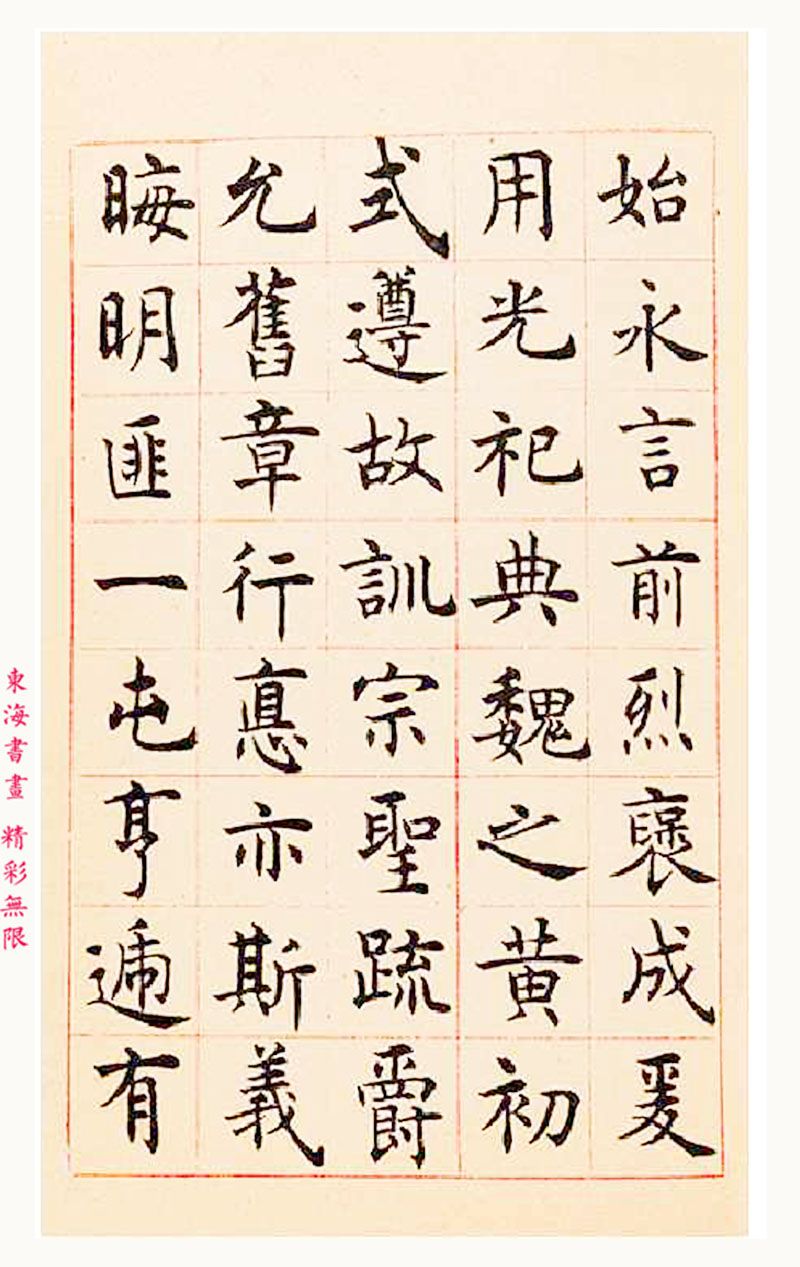 始永言前烈褒成爰
用光祀典魏之黃初
式遵故訓宗聖疏爵
允舊章行悳亦斯義
晦明匪一屯亨遞有
東海書畫 精彩無限